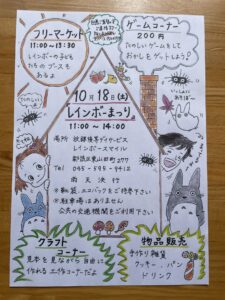 フリーマーケット
11:00～13:30
レインボーの子ども
たちのブースも
あるよ
ゲームコーナー
200円
たのしいゲームをして
おかしをゲットしよう♪
10月18日(土)
レインボーまつり
11:00～14:00
場所 放課後等デイサービス
レインボースマイル
都筑区東山田町277
Tel 045-595-9412
雨天決行
※軟装、エコバックをご持参下さい
※駐車場はありません
公共の交通機関をご利用下さい
クラフト
コーナー
見本を見ながら自由に
作れる工作コーナーだよ
物品販売
手作り雑貨
クッキー、パン
ドリンク